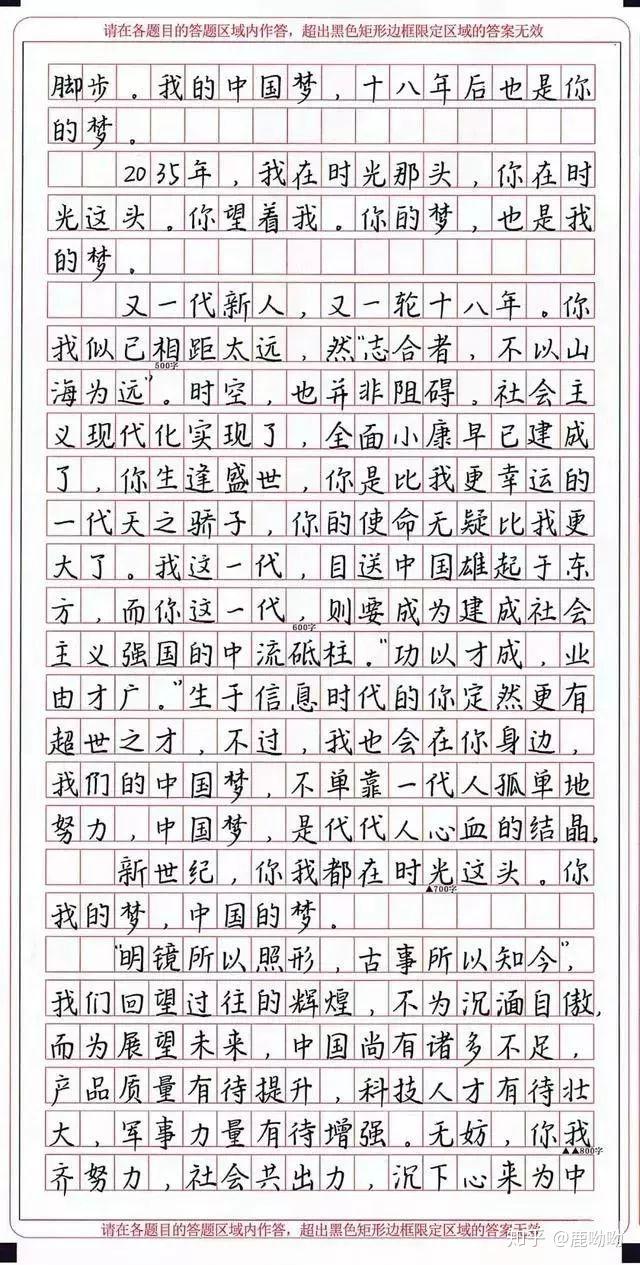 请在各题目的答题区域内作答，超出黑色矩形边框限定区域的答案无效
脚步。我的中国梦，十八年后也是你
的梦。
2035年，我在时光那头，你在时
光这头。你望着我。你的梦，也是我
的梦。
又一代新人，又一轮十八年。你
我似已相距太远，然“志合者，不以山
500字
海为远”。时空，也并非阻碍。社会主
义现代化实现了，全面小康早已建成
了，你生逢盛世，你是比我更幸运的
一代天之骄子，你的使命无疑比我更
大了。我这一代，目送中国雄起于东
方，而你这一代，则要成为建成社会
600字
主义强国的中流砥柱。“功以才成，业
由才广。”生于信息时代的你定然更有
超世之才，不过，我也会在你身边，
我们的中国梦，不单靠一代人孤单地
努力，中国梦，是代代人心血的结晶。
新世纪，你我都在时光这头。你
▲700字
我的梦，中国的梦。
“明镜所以照形，古事所以知今”，
我们回望过往的辉煌，不为沉湎自傲，
而为展望未来，中国尚有诸多不足，
产品质量有待提升，科技人才有待壮
大，军事力量有待增强。无妨，你我
▲▲800字
齐努力，社会共出力，沉下心来为中
请在各题目的答题区域内作答，超出黑色矩形边框限定区域的答案无效
知乎 @鹿呦呦